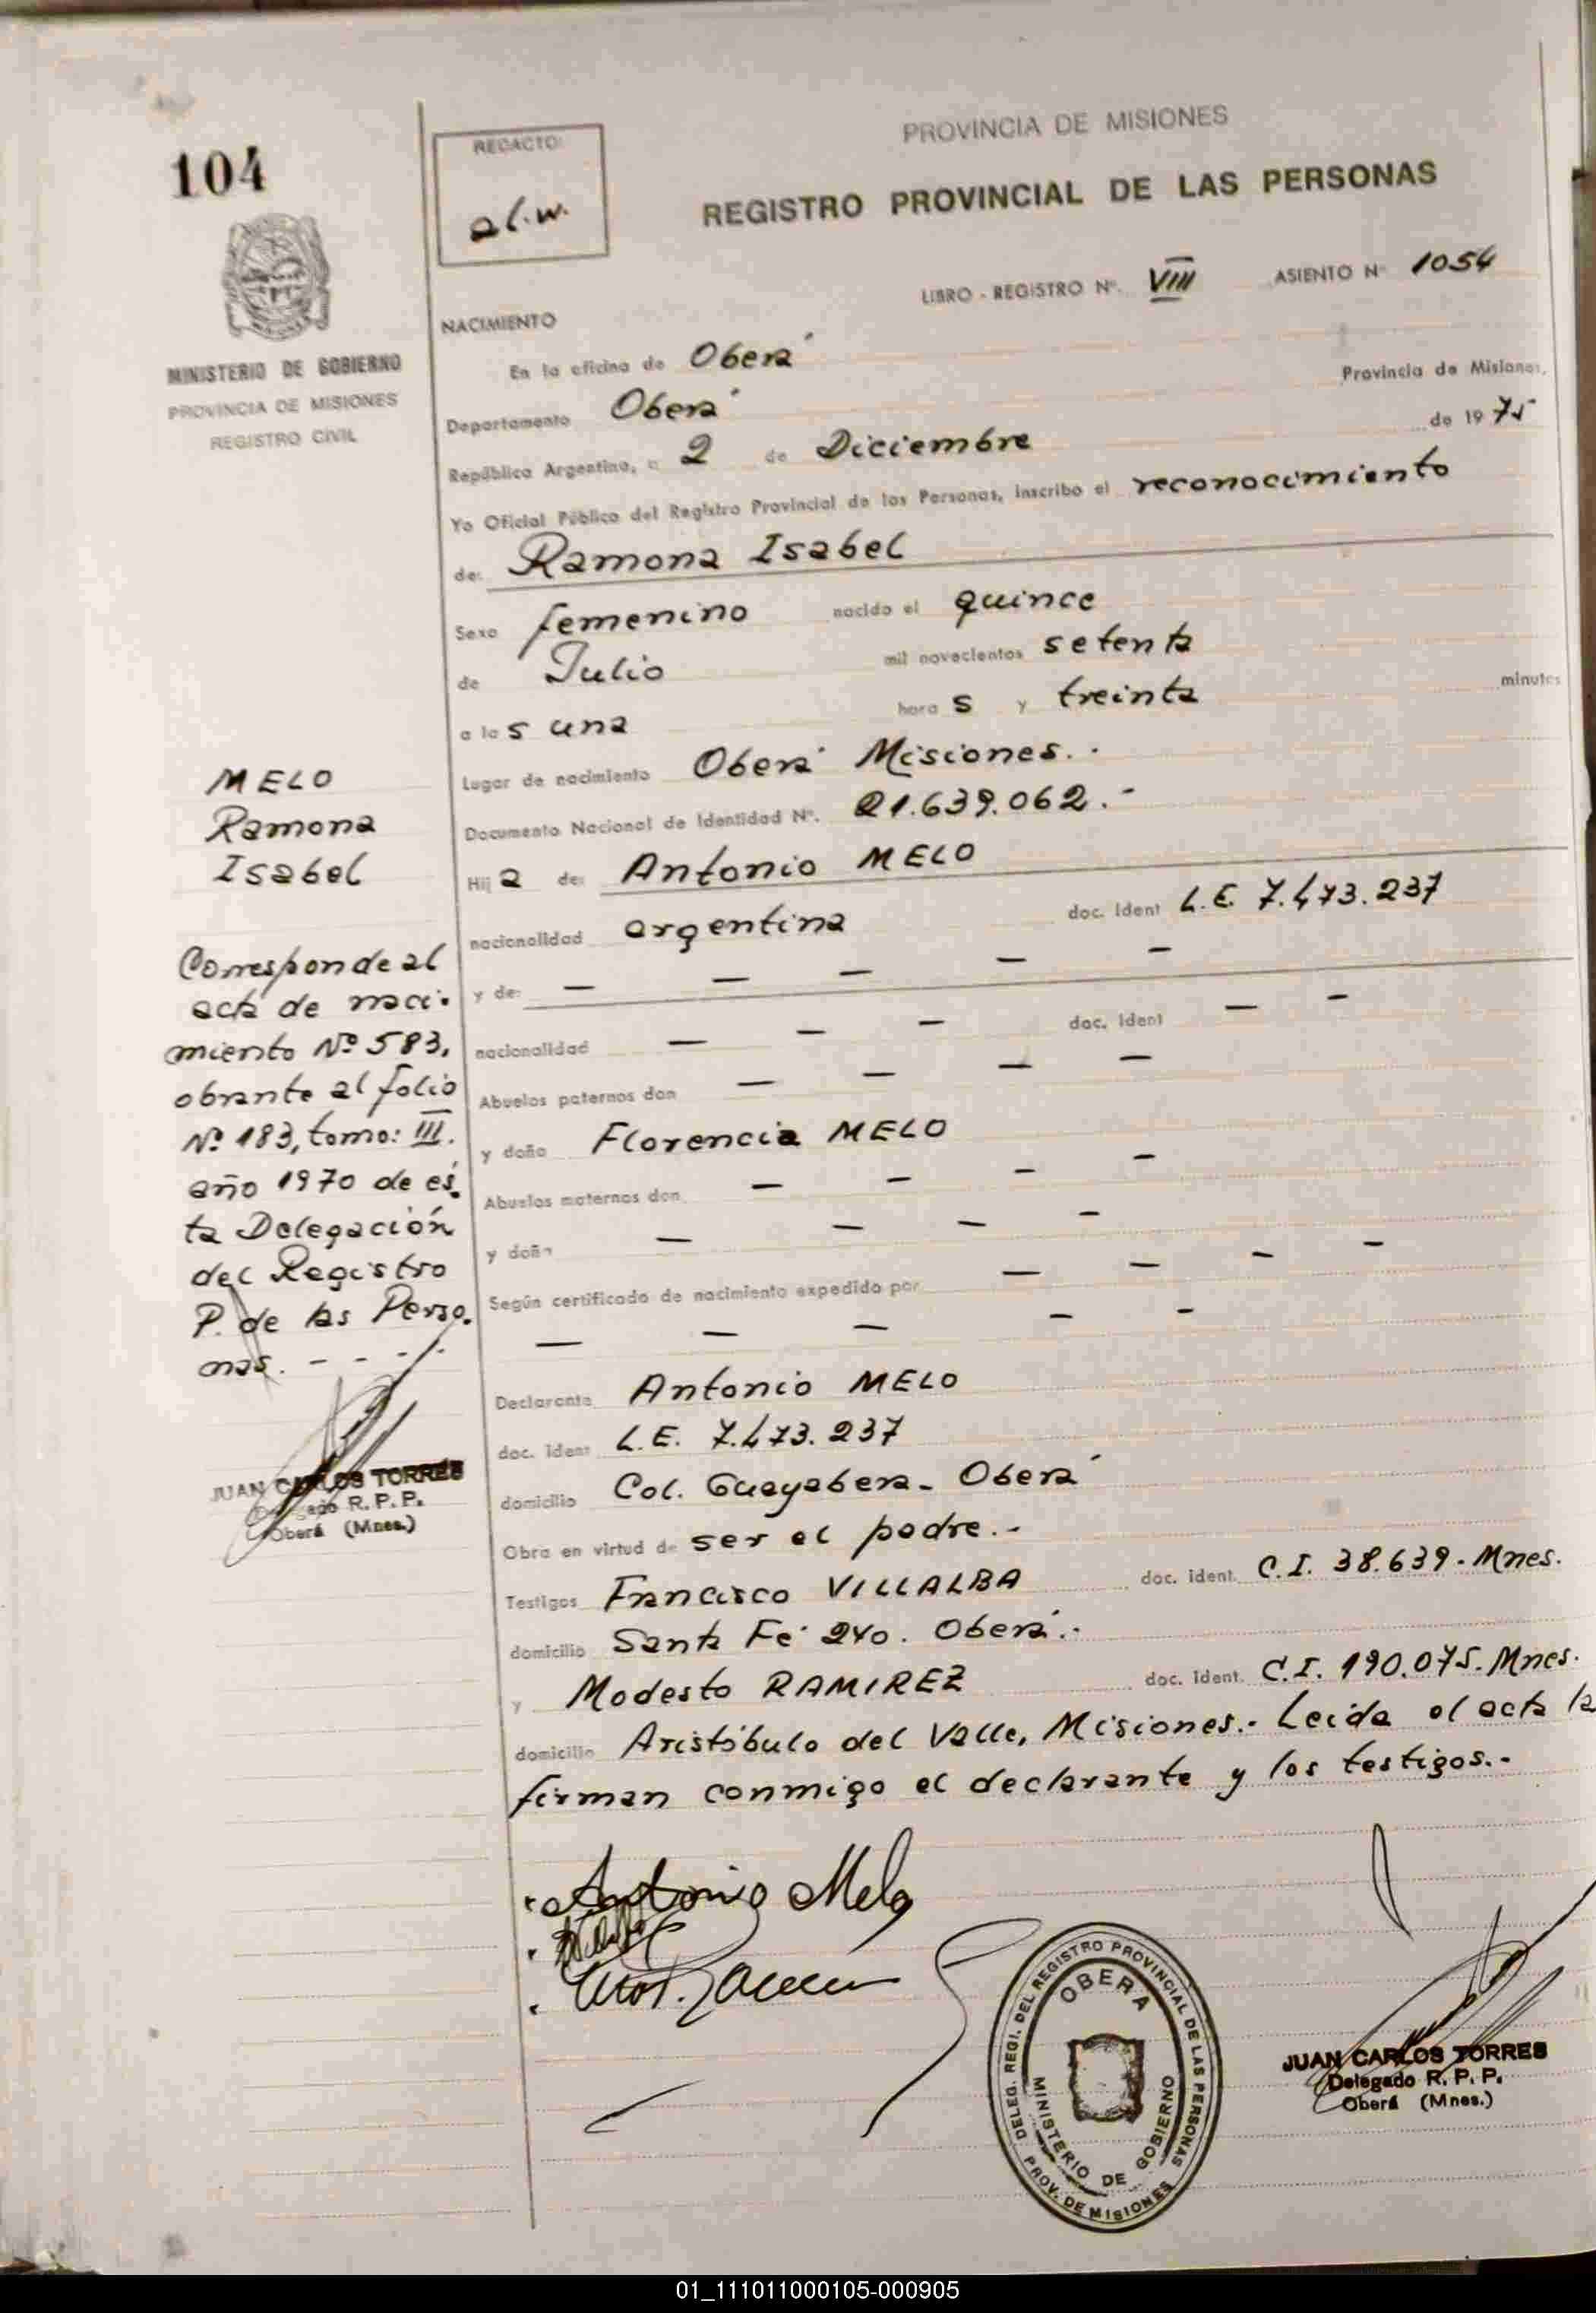 104
REDACTO:
al.w.
PROVINCIA DE MISIONES
REGISTRO PROVINCIAL DE LAS PERSONAS
MINISTERIO DE GOBIERNO
PROVINCIA DE MISIONES
REGISTRO CIVIL
LIBRO - REGISTRO Nº. VIII ASIENTO Nº 1054
NACIMIENTO
En la oficina de Oberá
Provincia de Misiones,
Departamento Oberá
República Argentina, a 2 de Diciembre de 1975
Yo Oficial Público del Registro Provincial de las Personas, inscribo el reconocimiento
de: Ramona Isabel
Sexo femenino nacido el quince
de Julio mil novecientos setenta
a las una horas y treinta minutos
Lugar de nacimiento Oberá Misiones.-
Documento Nacional de Identidad Nº. 21.639.062.-
Hija de: Antonio MELO
nacionalidad argentina doc. Ident L.E. 7.473.237
y de: — — — — —
nacionalidad — — — doc. Ident — —
Abuelos paternos don — — — —
y doña Florencia MELO
Abuelos maternos don — — — —
y doña — — — —
Según certificado de nacimiento expedido por — — — —
— — — — —
Declarante Antonio MELO
doc. ident L.E. 7.473.237
domicilio Col. Guayabera - Oberá
Obra en virtud de ser el padre.-
Testigos Francisco VILLALBA doc. ident. C.I. 38.639 - Mnes.
domicilio Santa Fé 240. Oberá.-
y Modesto RAMIREZ doc. ident. C.I. 190.075. Mnes.
domicilio Aristóbulo del Valle, Misiones.- Leida el acta la
firman conmigo el declarante y los testigos.-
MELO
Ramona
Isabel
Corresponde al
acta de naci-
miento Nº 583,
obrante al folio
Nº 183, tomo: III.
año 1970 de es-
ta Delegación
del Registro
P. de las Perso-
nas. - - - -
JUAN CARLOS TORRES
Delegado R. P. P.
Oberá (Mnes.)
Antonio Melo
DELEG. REGI. DEL REGISTRO PROVINCIAL DE LAS PERSONAS
PROV. DE MISIONES
OBERA
MINISTERIO DE GOBIERNO
JUAN CARLOS TORRES
Delegado R. P. P.
Oberá (Mnes.)
01_111011000105-000905